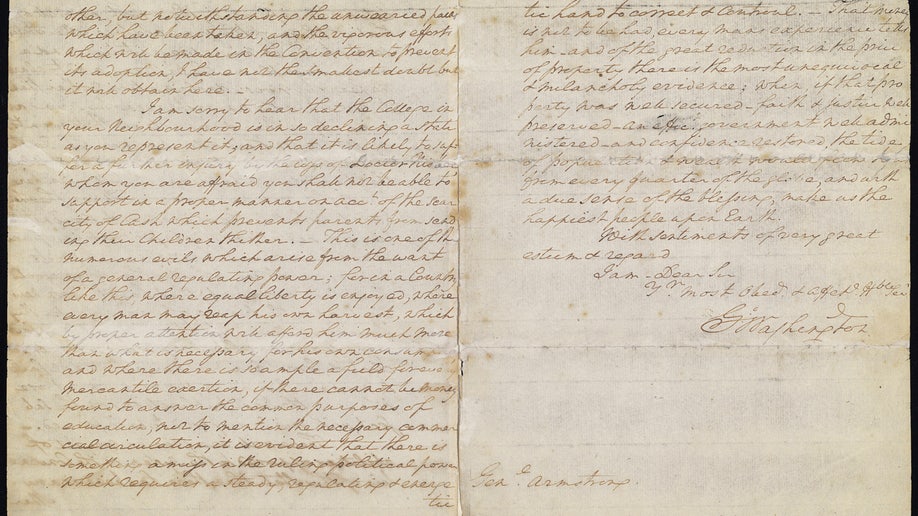 other, but notwithstanding the unwearied pains
which have been taken, and the vigorous efforts
which will be made in the Convention to prevent
its adoption, I have not the smallest doubt but
it will obtain here. —
I am sorry to hear that the College in
your Neighbourhood is in so declining a state
as you represent it; and that it is likely to suf
fer a further injury by the loss of Doctor Nisbet
whom you are affraid you shall not be able to
support in a proper manner on acct. of the scar
city of Cash which prevents parents from send
ing their Children thither. — This is one of the
numerous evils which arise from the want
of a general regulating power; for in a Country
like this, where equal liberty is enjoyed, where
every man may reap his own harvest, which
by proper attention will afford him much more
than what is necessary for his own consump
and where there is so ample a field for every
mercantile exertion, if there cannot be money
found to answer the common purposes of
education, not to mention the necessary commer
cial circulation, it is evident that there is
something amiss in the ruling political power
which requires a steady, regulating & energe
tic
tic hand to correct & control. — That money
is not to be had, every mans experience tells
him — and of the great reduction in the price
of property there is the most unequivocal
& melancholy evidence; when, if that pro
perty was well secured — faith & justice well
preserved — an effic. government well admi
nistered — and confidence restored the tide
of population & wealth would flow to
from every quarter of the globe, and with
a due sense of the blessing, make us the
happiest people upon Earth.
With sentiments of very great
esteem & regard
I am — Dear Sir
Yr. most Obedt. & affect. Hble Ser
Go: Washington
Genl. Armstrong.